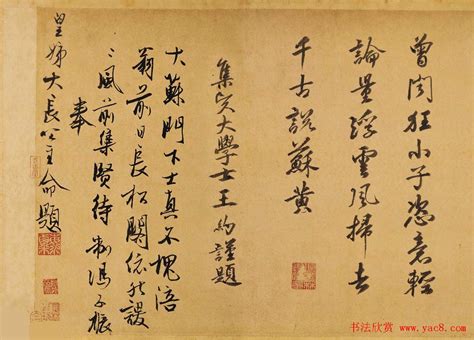 曾聞狂小子恣意輕
論量浮雲風掃去
千古說蘇黃
集賢大學士王約謹題
大蘇門下士真不愧涪
翁前日長松閣依然謖
〻風前集賢待制馮子振
奉
皇姊大長公主命題
书法欣赏 www.yac8.com